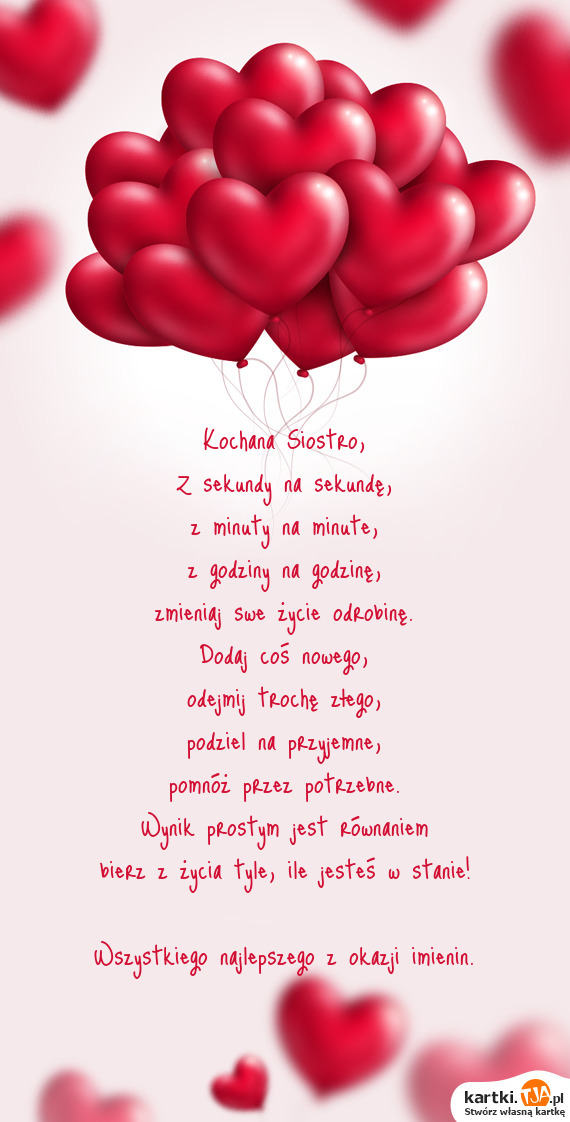 Kochana Siostro,
Z sekundy na sekundę,
z minuty na minute,
z godziny na godzinę,
zmieniaj swe życie odrobinę.
Dodaj coś nowego,
odejmij trochę złego,
podziel na przyjemne,
pomnóż przez potrzebne.
Wynik prostym jest równaniem
bierz z życia tyle, ile jesteś w stanie!
Wszystkiego najlepszego z okazji imienin.
kartki.TJA.pl
Stwórz własną kartkę